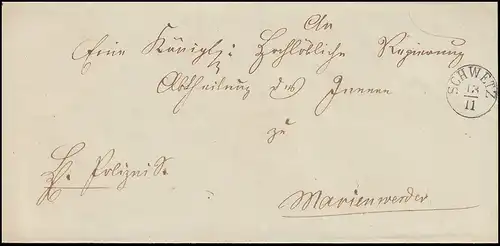 An
Eine Königl: Hochlöbliche Regierung
Abtheilung des Innern
zu
Marienwerder
H. Polizei S.
SCHWETZ
13
11